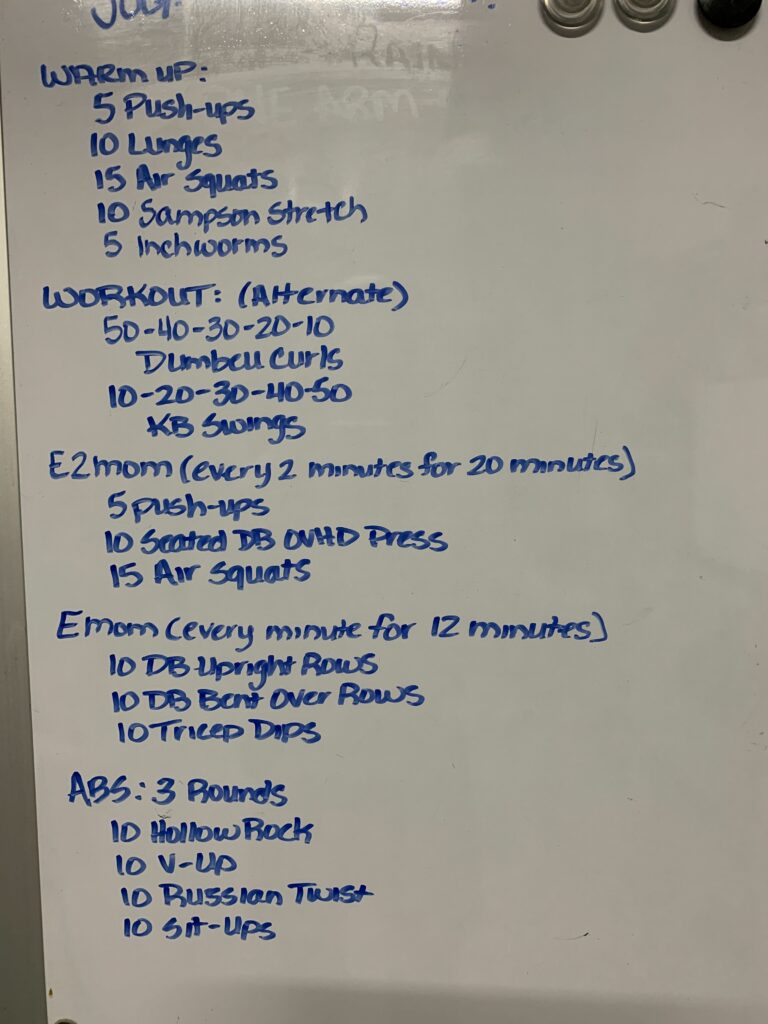 WARM UP:
5 Push-ups
10 Lunges
15 Air Squats
10 Sampson Stretch
5 Inchworms
WORKOUT: (Alternate)
50-40-30-20-10
Dumbell Curls
10-20-30-40-50
KB Swings
E2mom (every 2 minutes for 20 minutes)
5 push-ups
10 Seated DB OVHD Press
15 Air Squats
Emom (every minute for 12 minutes)
10 DB Upright Rows
10 DB Bent Over Rows
10 Tricep Dips
ABS: 3 Rounds
10 Hollow Rock
10 V-Up
10 Russian Twist
10 Sit-Ups